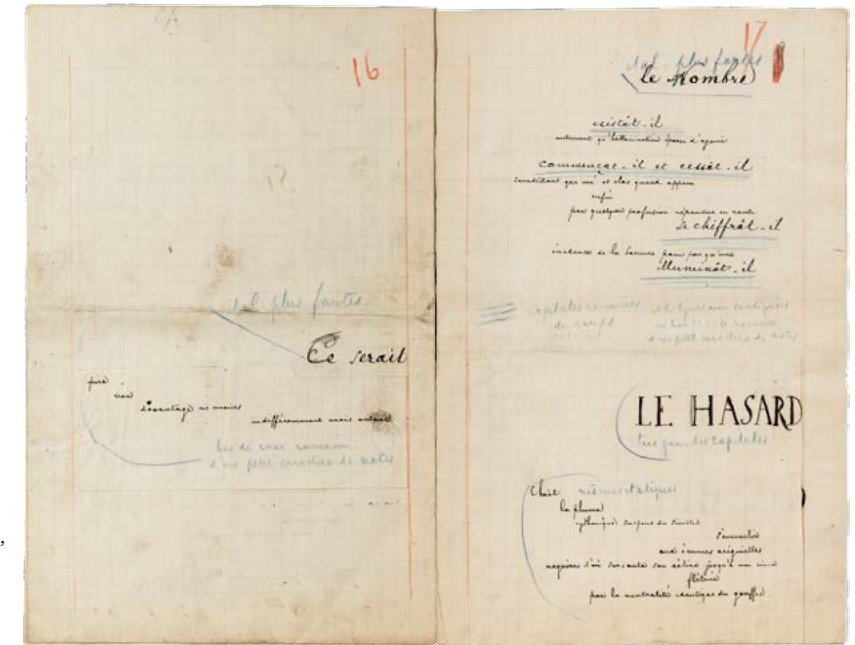 16
ital. plus fortes
Ce serait
pire
non
davantage ni moins
indifféremment mais autant
bas de casse romain
d'un petit caractère de notes
17
ital. plus fortes
le nombre
existât-il
autrement qu'hallucination éparse d'agonie
commençât-il et cessât-il
que nié et clos quand apparu
enfin
par quelque profusion répandue en rareté
se chiffrât-il
évidence de la somme pour peu qu'une
illuminât-il
capitales romaines
et les lignes non soulignées
du corps
en bas de casse romain
d'un petit caractère de notes
LE HASARD
très grandes capitales
Choit
mêmes italiques
la plume
rythmique suspens du sinistre
s'ensevelir
aux écumes originelles
naguères d'où sursauta son délire jusqu'à une cime
flétrie
par la neutralité identique du gouffre.